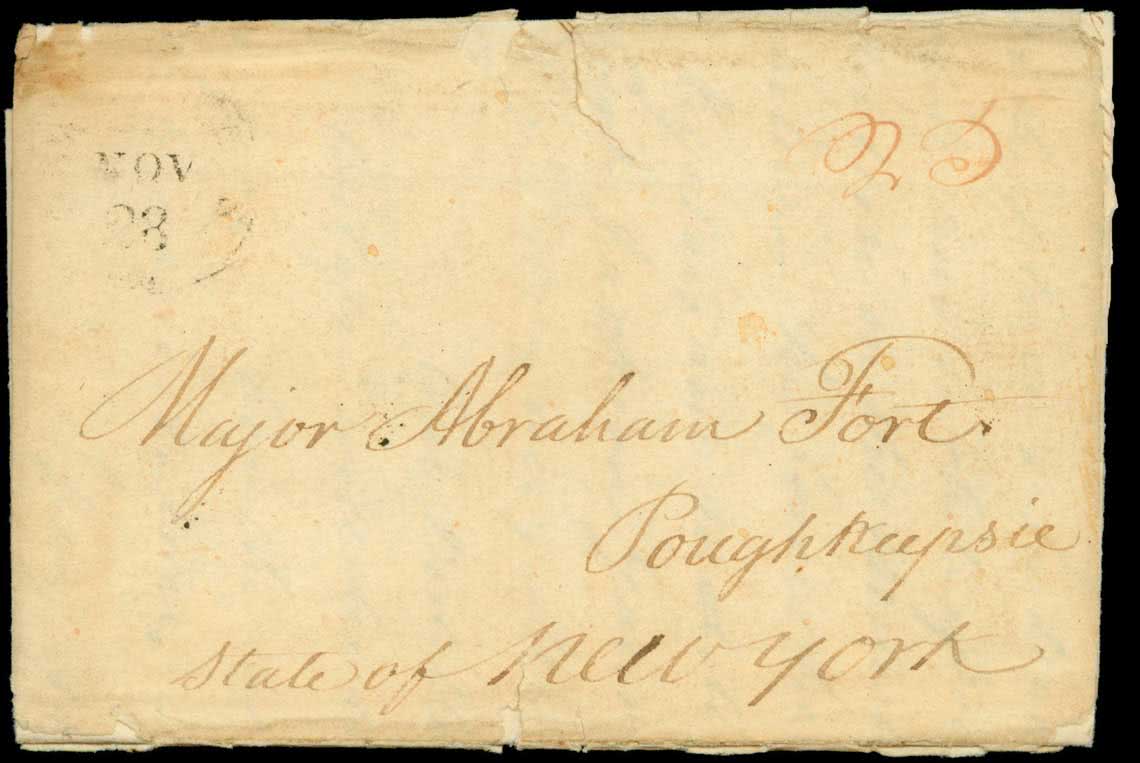 NOV
28
25
Major Abraham Fort.
Poughkeepsie
State of New York